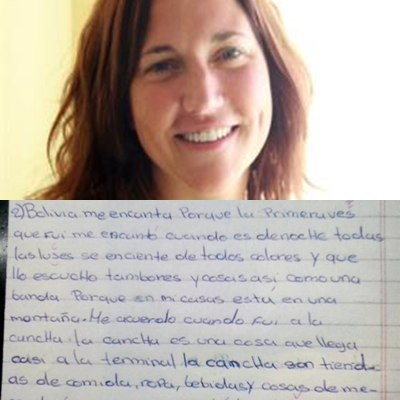 2) Bolivia me encanta Porque la Primeraves
que fui me encantó cuando es denocHe todas
las luses se enciente de todos colores y que
llo escucHo tambores y cosas asi como una
banda Porque en mi casas esta en una
montaña. Me acuerdo cuando fui a la
cancHa. la cancHa es una cosa que llega
casi a la terminal la cancHa son tiend-
as de comida, ropa, bebidas y cosas de me-